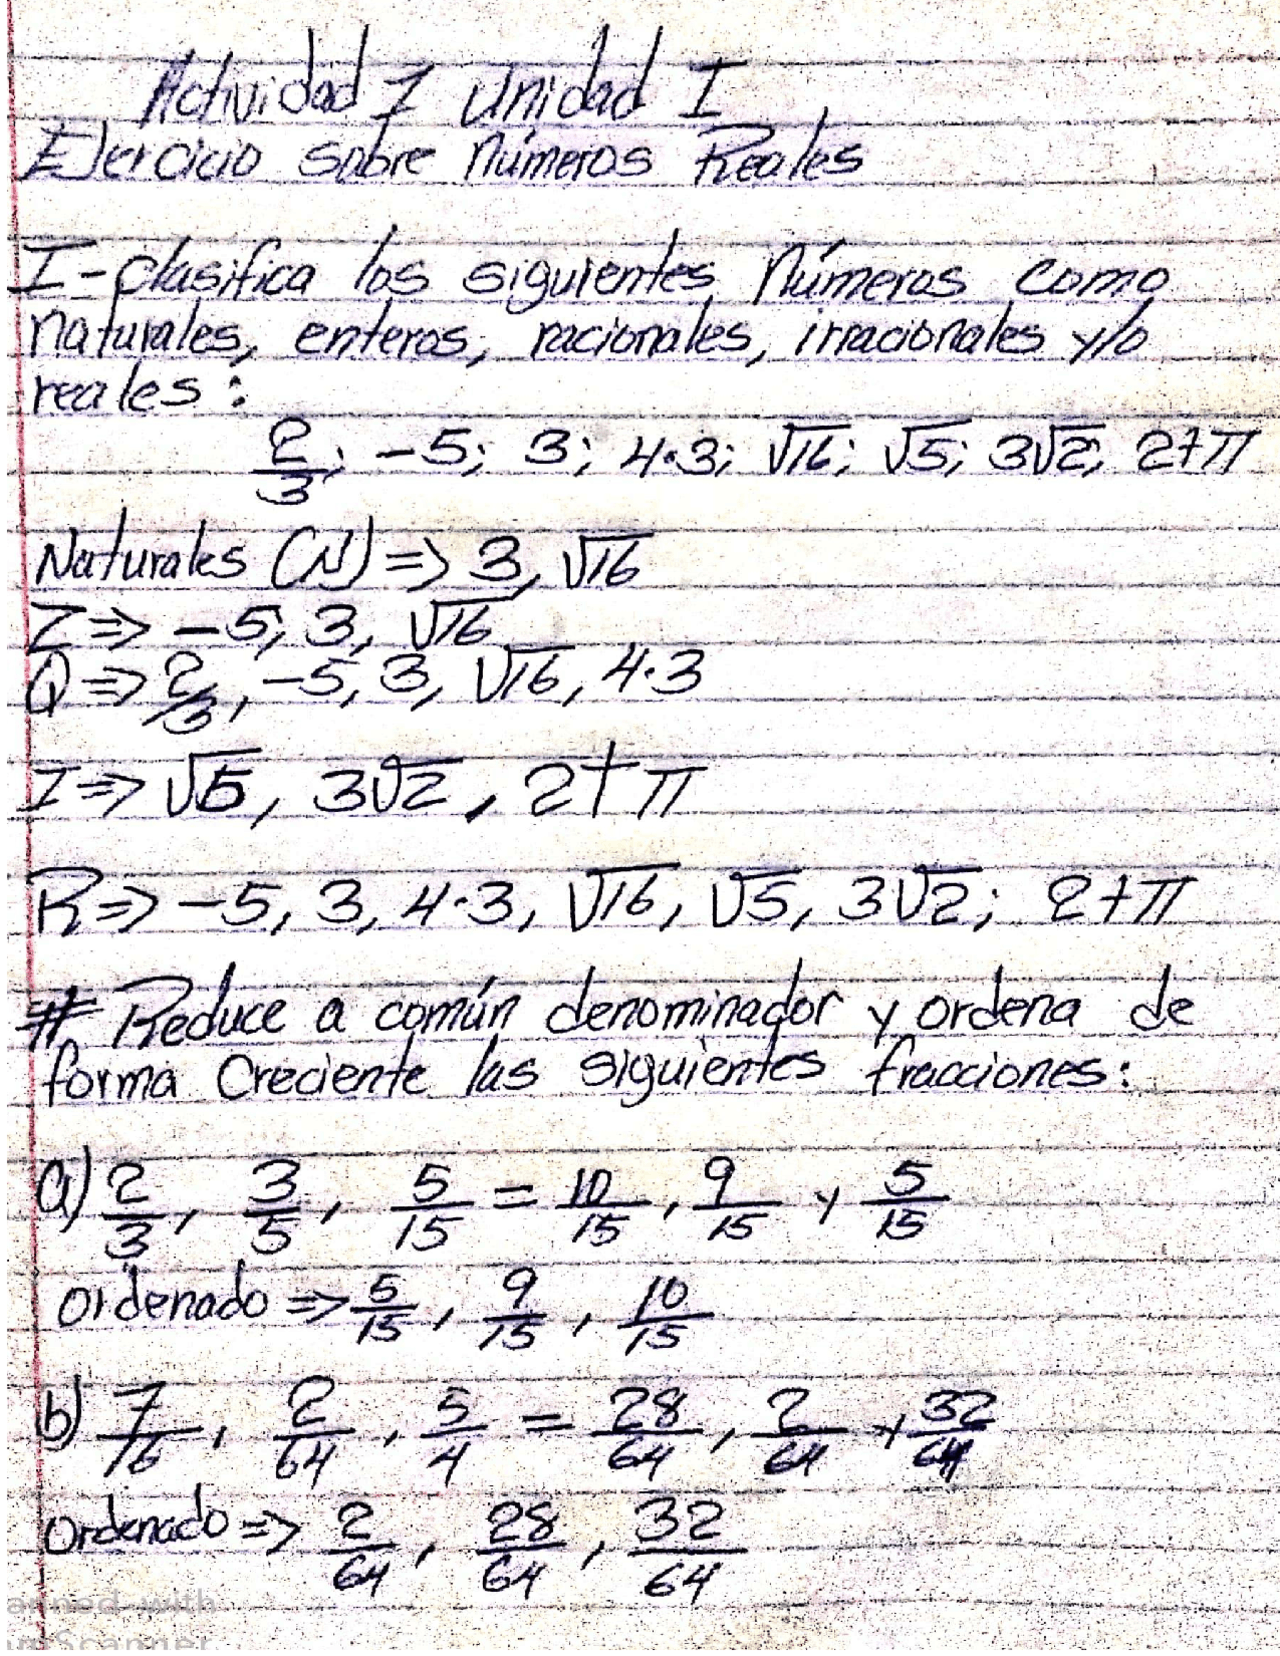 Actividad 1 Unidad I
Ejercicio sobre Números Reales
I-clasifica los siguientes Números como
naturales, enteros, racionales, irracionales y/o
reales:
2/3; -5; 3; 4.3; √16; √5; 3√2; 2+π
Naturales (N) => 3, √16
Z => -5, 3, √16
Q => 2/3, -5, 3, √16, 4.3
I => √5, 3√2, 2+π
R => -5, 3, 4.3, √16, √5, 3√2; 2+π
# Reduce a común denominador y ordena de
forma Creciente las siguientes fracciones:
a) 2/3, 3/5, 5/15 = 10/15, 9/15 y 5/15
Ordenado => 5/15, 9/15, 10/15
b) 7/16, 2/64, 5/4 = 28/64, 2/64 y 32/64
Ordenado => 2/64, 28/64, 32/64
anned with
mScanner